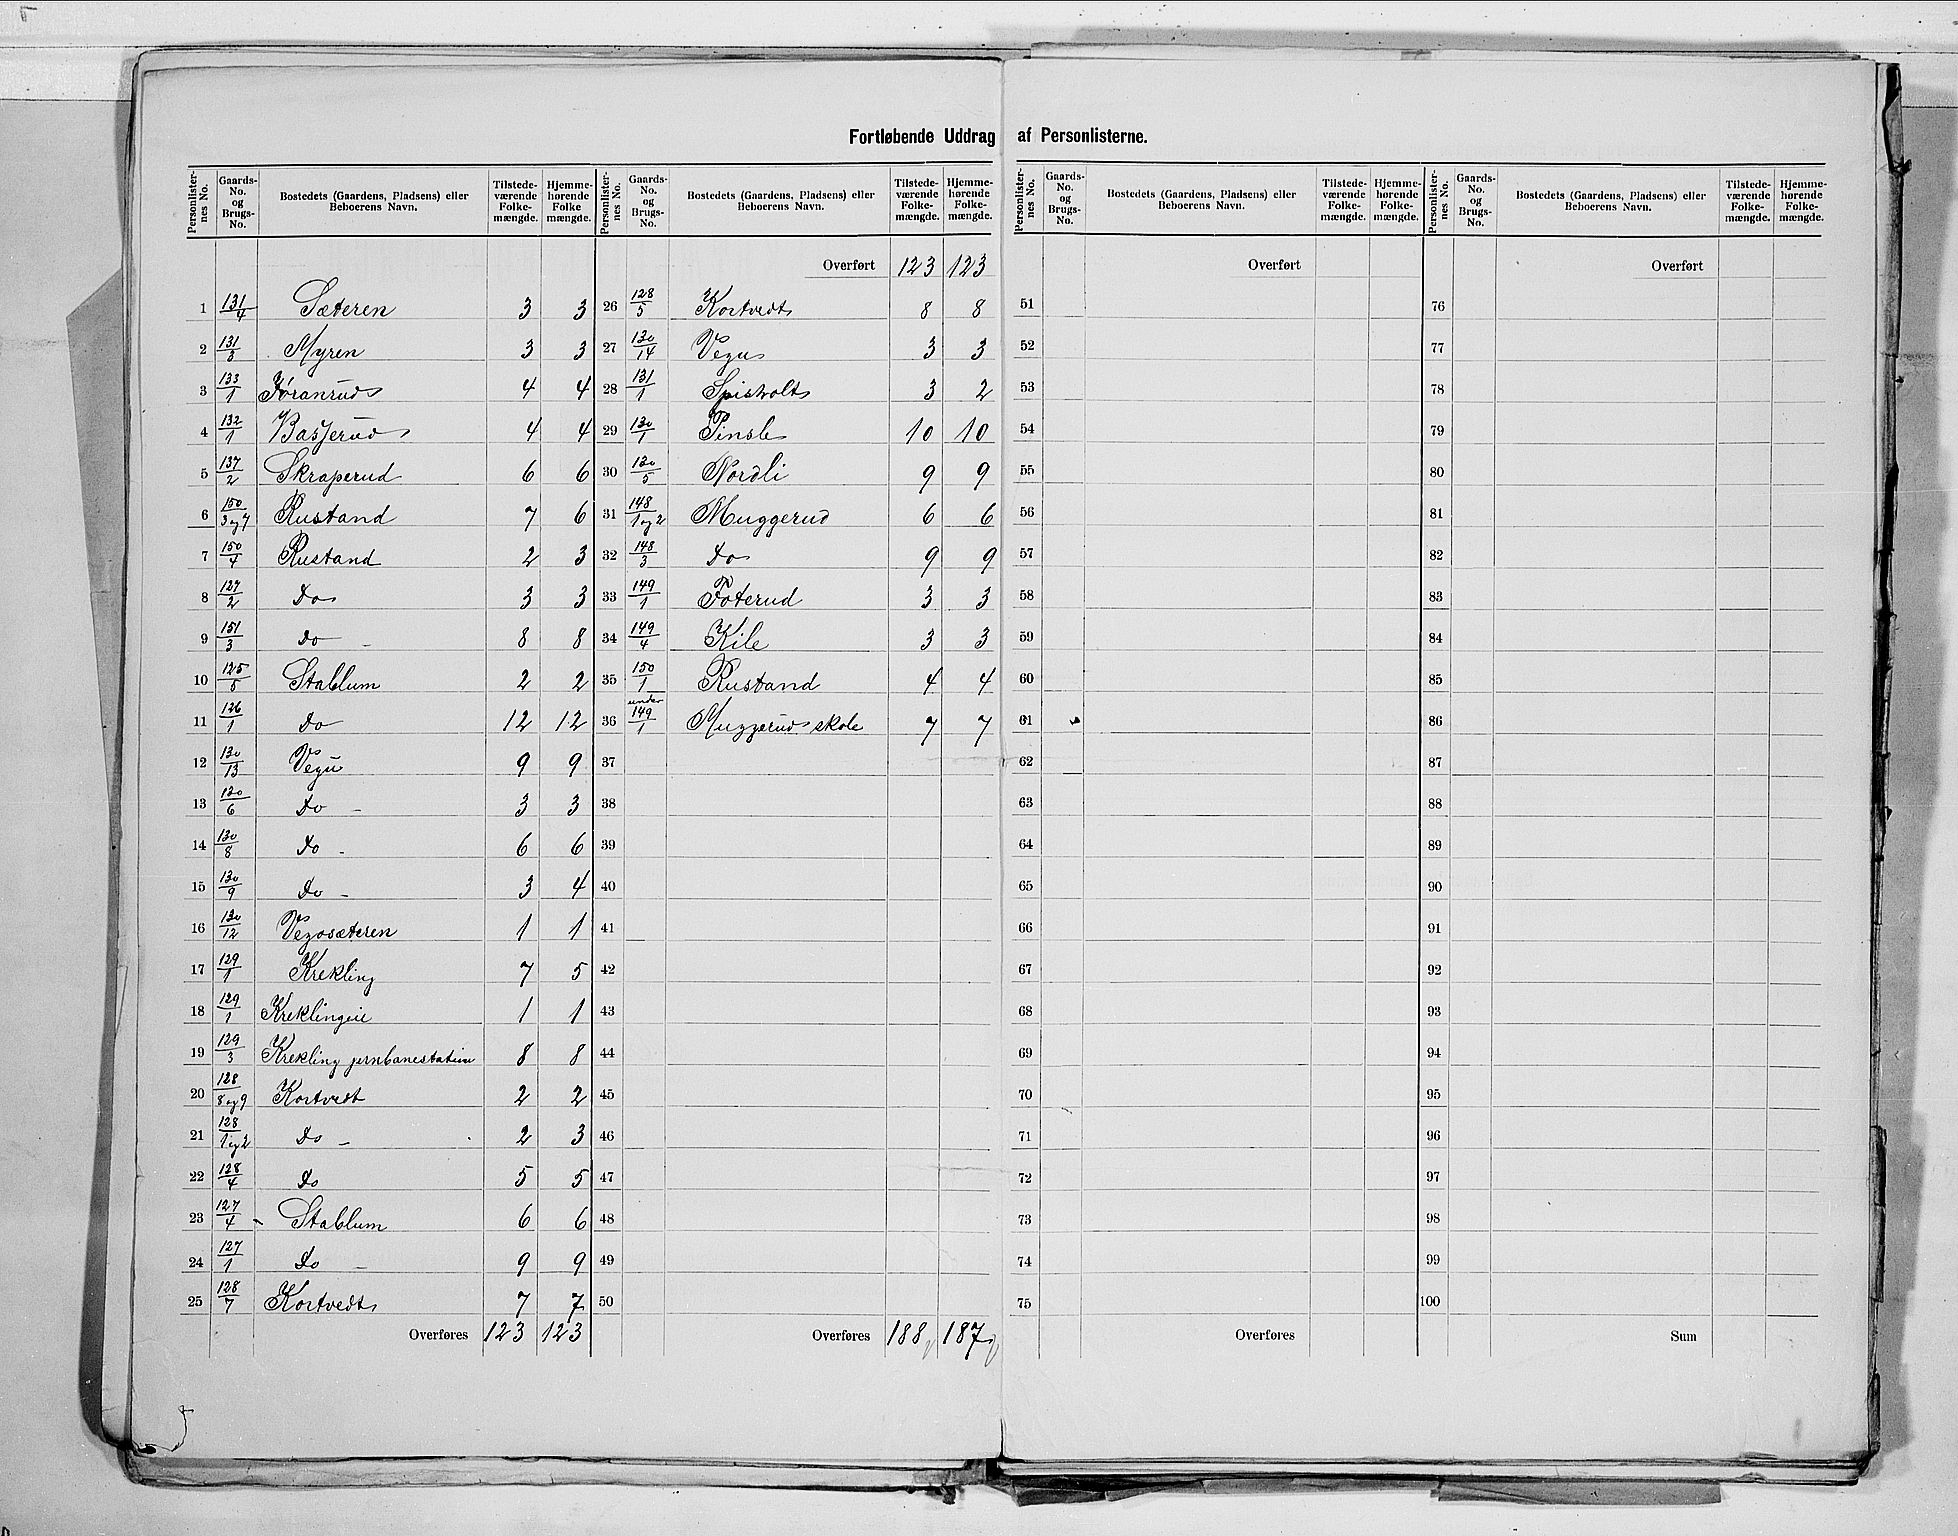 Fortløbende Uddrag af Personlisterne.
Personlisternes No. Gaards-No. og Brugs-No. Bostedets (Gaardens, Pladsens) eller Beboerens Navn. Tilstedeværende Folkemængde. Hjemmehørende Folkemængde.
1 131/4 Sæteren 3 3
2 131/3 Myren 3 3
3 133/1 Jøranrud 4 4
4 132/1 Basjerud 4 4
5 137/2 Skraperud 6 6
6 150/3 og 7 Rustand 7 6
7 150/4 Rustand 2 3
8 127/2 Do 3 3
9 151/3 Do - 8 8
10 125/5 Stablum 2 2
11 126/1 Do 12 12
12 130/13 Vegu 9 9
13 130/6 Do - 3 3
14 130/8 Do - 6 6
15 130/9 Do - 3 4
16 130/12 Vegosæteren 1 1
17 129/1 Krekling 7 5
18 129/1 Kreklingeie 1 1
19 129/3 Krekling jernbanestation 8 8
20 128/8 og 9 Kortvedt 2 2
21 128/1 og 2 Do - 2 3
22 128/4 Do 5 5
23 127/4 - Stablum 6 6
24 127/1 Do - 9 9
25 128/7 Kortvedt 7 7
Overføres 123 123
Personlisternes No. Gaards-No. og Brugs-No. Bostedets (Gaardens, Pladsens) eller Beboerens Navn. Tilstedeværende Folkemængde. Hjemmehørende Folkemængde.
Overført 123 123
26 128/5 Kortvedt 8 8
27 130/14 Vegu 3 3
28 131/1 Spisholt 3 2
29 130/1 Pinsle 10 10
30 130/5 Nordli 9 9
31 148/1 og 2 Muggerud 6 6
32 148/3 Do 9 9
33 149/1 Foterud 3 3
34 149/4 Kile 3 3
35 150/1 Rustand 4 4
36 under 149/1 Muggerud skole 7 7
37
38
39
40
41
42
43
44
45
46
47
48
49
50
Overføres 188 187
Personlisternes No. Gaards-No. og Brugs-No. Bostedets (Gaardens, Pladsens) eller Beboerens Navn. Tilstedeværende Folkemængde. Hjemmehørende Folkemængde.
Overført
51
52
53
54
55
56
57
58
59
60
61
62
63
64
65
66
67
68
69
70
71
72
73
74
75
Overføres
Personlisternes No. Gaards-No. og Brugs-No. Bostedets (Gaardens, Pladsens) eller Beboerens Navn. Tilstedeværende Folkemængde. Hjemmehørende Folkemængde.
Overført
76
77
78
79
80
81
82
83
84
85
86
87
88
89
90
91
92
93
94
95
96
97
98
99
100
Sum